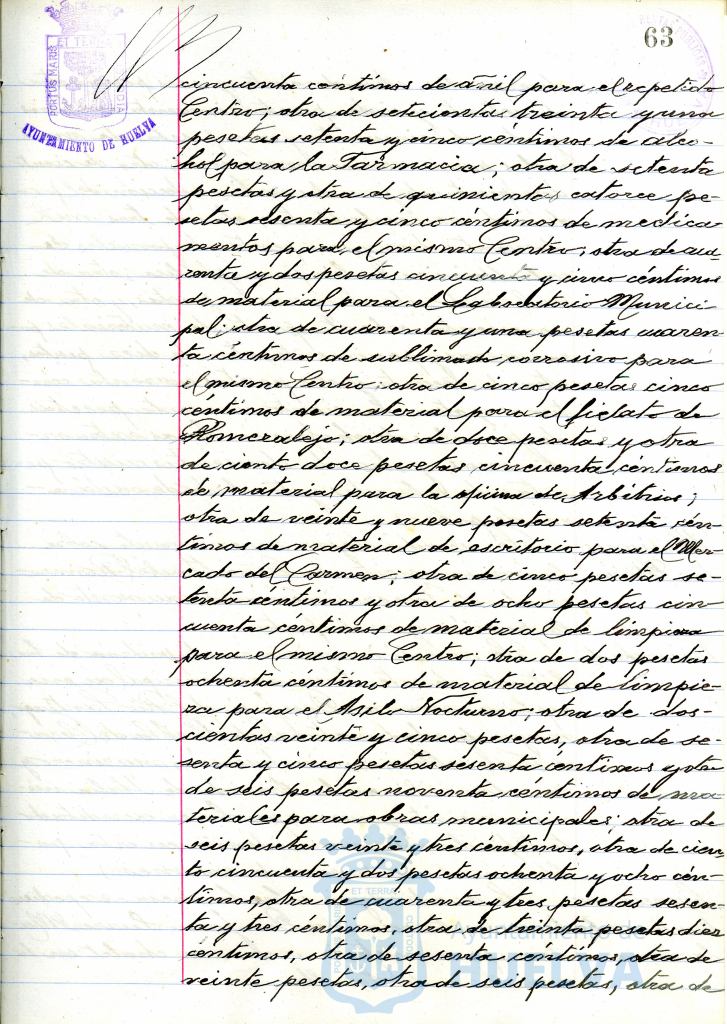 63
PORTUS MARIS ET TERRAE CUSTODIA
AYUNTAMIENTO DE HUELVA
cincuenta céntimos de añil para el repetido
Centro; otra de setecientas treinta y una
pesetas setenta y cinco céntimos de alco-
hol para la Farmacia; otra de setenta
pesetas y otra de quinientas catorce pe-
setas sesenta y cinco céntimos de medica
mentos para el mismo Centro; otra de cua
renta y dos pesetas cincuenta y cinco céntimos
de material para el Laboratorio Munici
pal; otra de cuarenta y una pesetas cuaren
ta céntimos de sublimado corrosivo para
el mismo Centro; otra de cinco pesetas cinco
céntimos de material para el fielato de
Romeralejo; otra de doce pesetas y otra
de ciento doce pesetas cincuenta céntimos
de material para la oficina de Arbitrios;
otra de veinte y nueve pesetas setenta cén-
timos de material de escritorio para el Mer-
cado del Carmen; otra de cinco pesetas se-
tenta céntimos y otra de ocho pesetas cin
cuenta céntimos de material de limpieza
para el mismo Centro; otra de dos pesetas
ochenta céntimos de material de limpie-
za para el Asilo Nocturno; otra de dos-
cientas veinte y cinco pesetas, otra de se-
senta y cinco pesetas sesenta céntimos y otra
de seis pesetas noventa céntimos de ma
teriales para obras municipales; otra de
seis pesetas veinte y tres céntimos, otra de cien
to cincuenta y dos pesetas ochenta y ocho cén-
timos, otra de cuarenta y tres pesetas sesen-
ta y tres céntimos, otra de treinta pesetas diez
céntimos, otra de sesenta céntimos, otra de
veinte pesetas, otra de seis pesetas, otra de
Ayuntamiento de
HUELVA